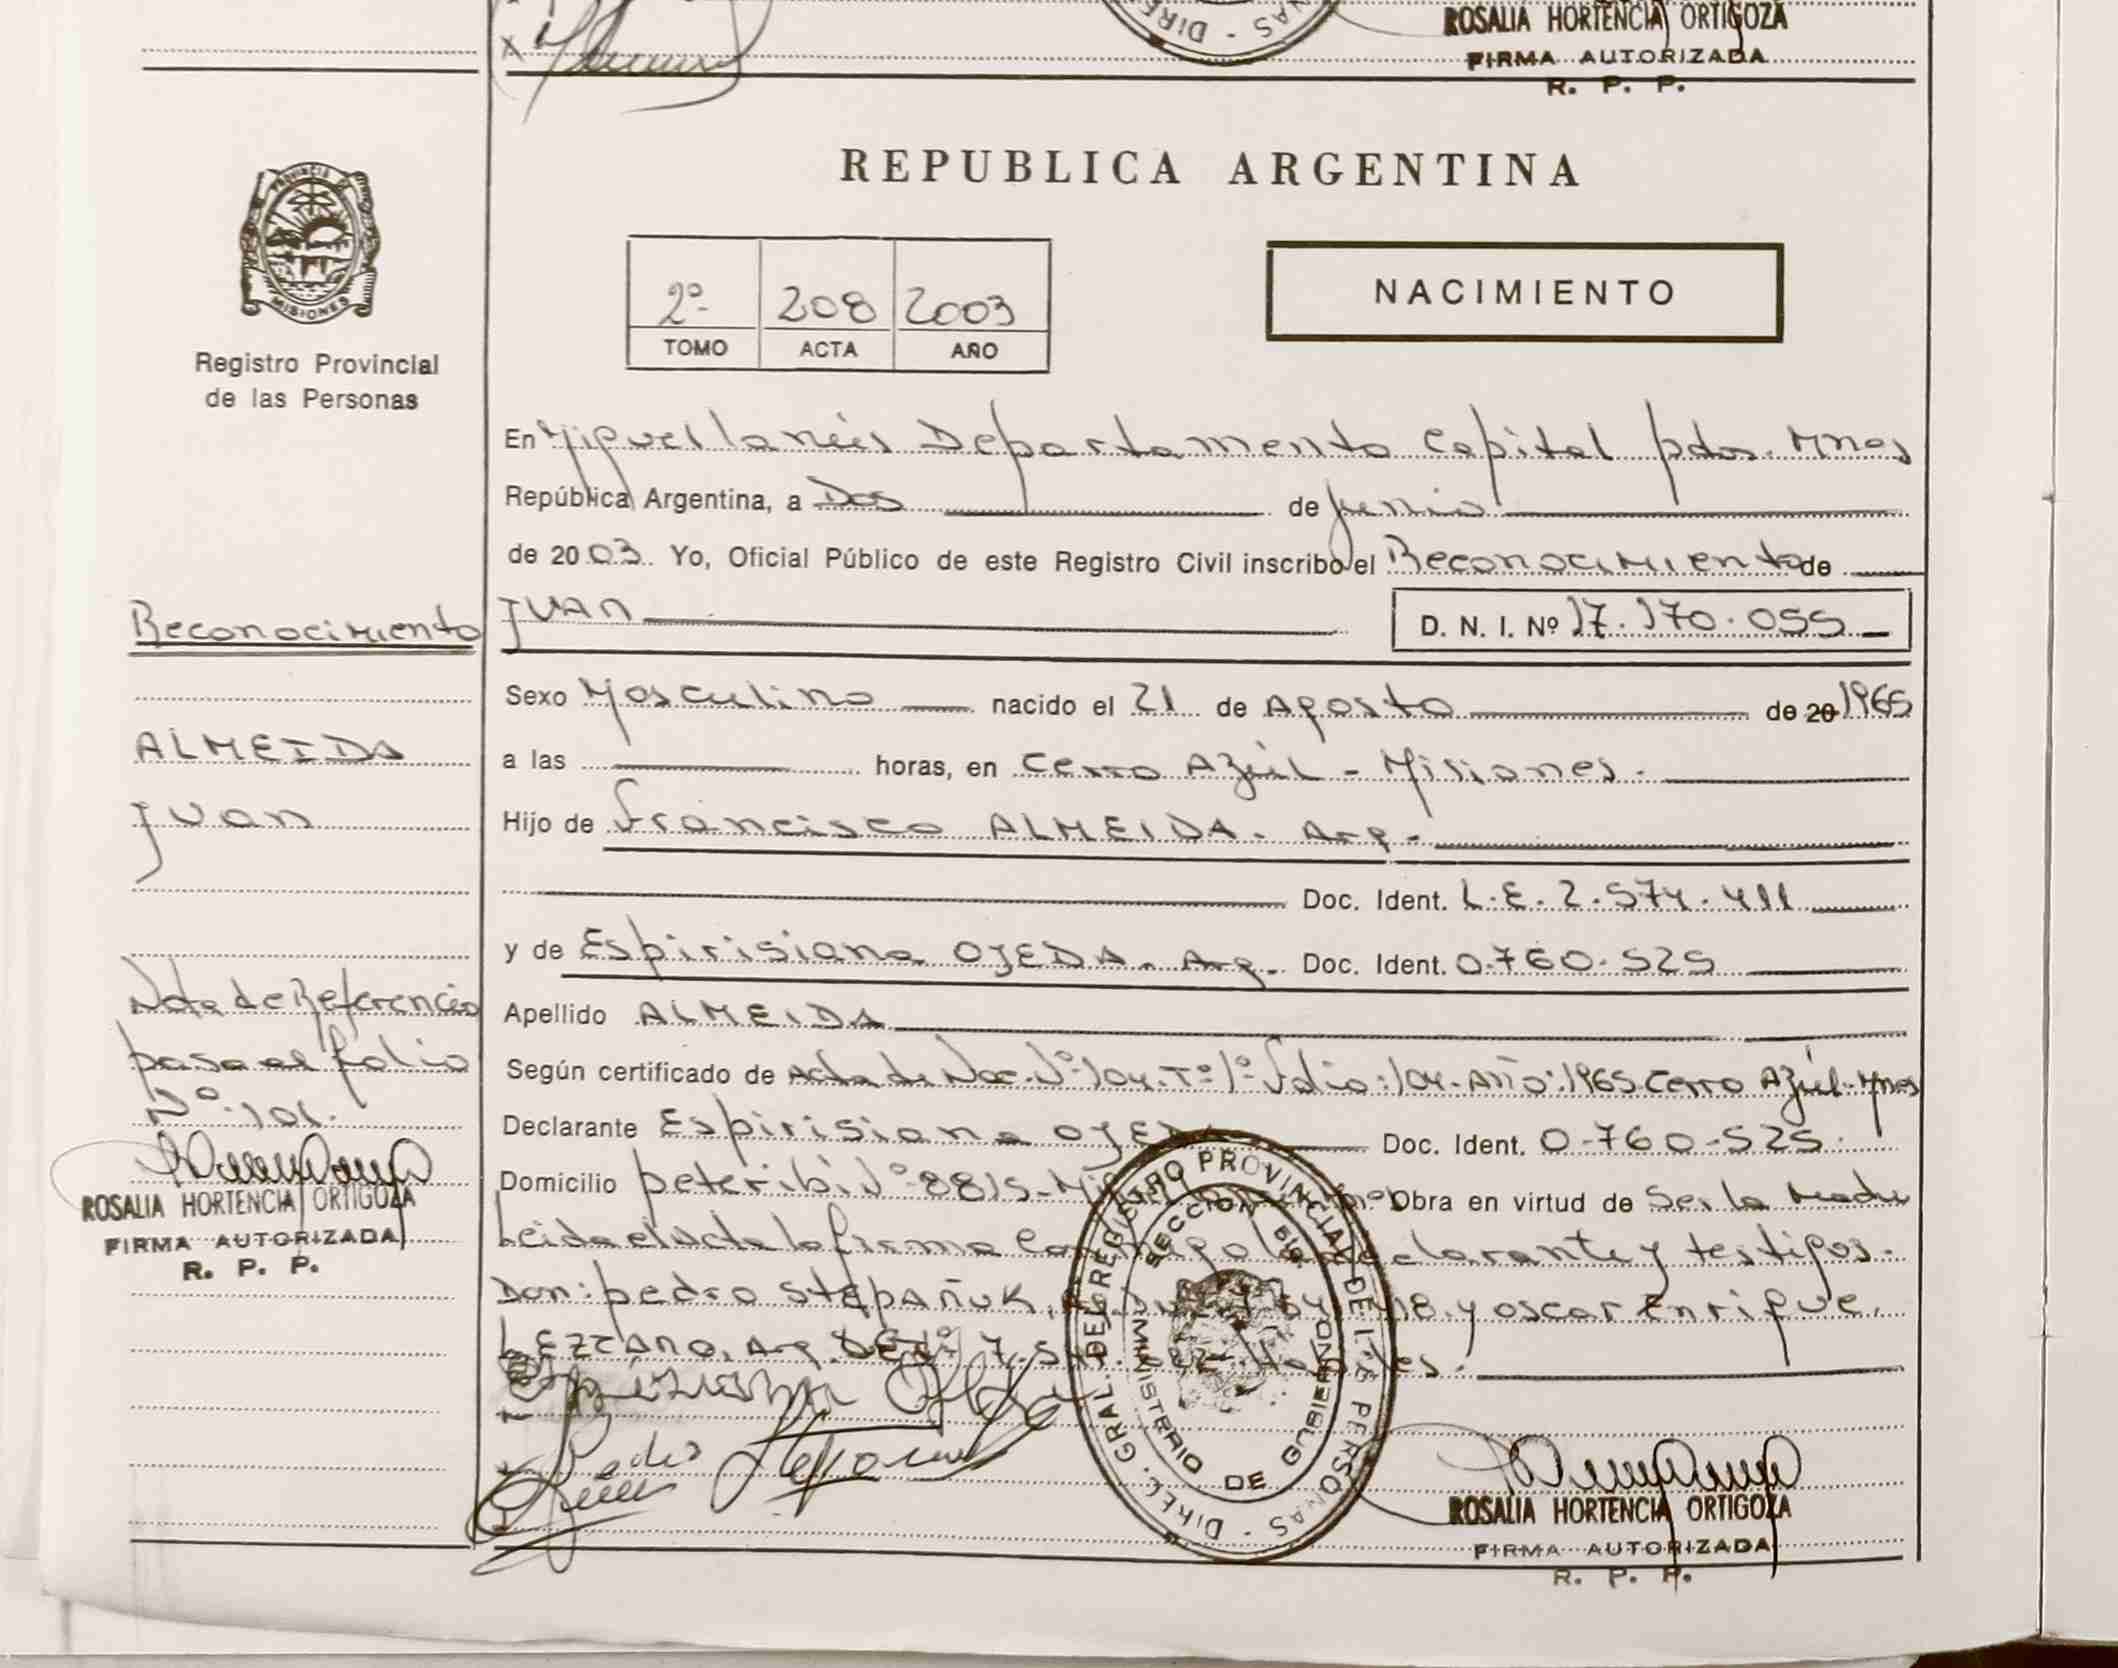 ROSALIA HORTENCIA ORTIGOZA
FIRMA AUTORIZADA
R. P. P.
REPUBLICA ARGENTINA
PROVINCIA DE
MISIONES
Registro Provincial
de las Personas
2º 208 2003
TOMO ACTA AÑO
NACIMIENTO
En Miguel Lanús Departamento Capital pdas. Mnes
República Argentina, a Dos de Junio
de 2003. Yo, Oficial Público de este Registro Civil inscribo el Reconocimiento de
JUAN D. N. I. Nº 17.170.055
Sexo Masculino nacido el 21 de Agosto de 20 1965
a las horas, en Cerro Azúl - Misiones.
Hijo de Francisco ALMEIDA. Arg.
Doc. Ident. L.E. 2.574.411
y de Espirisiana OJEDA. Arg. Doc. Ident. 0.760.525
Apellido ALMEIDA
Según certificado de Acta de Nac. Nº 104. Tº 1º folio: 104. Año: 1965. Cerro Azúl. Mnes
Declarante Espirisiana OJEDA Doc. Ident. 0.760.525.
Domicilio peteribi Nº 8815 - Obra en virtud de Ser la Madre
Leida el Acta la firma declarante y testigos.
Don: pedro Stepañuk, y oscar Enrique
LEZCANO, Arg.
Reconocimiento
ALMEIDA
Juan
Nota de Referencia
pasa al folio
Nº 101.
ROSALIA HORTENCIA ORTIGOZA
FIRMA AUTORIZADA
R. P. P.
DIREC. GRAL. DEL REGISTRO PROVINCIAL DE LAS PERSONAS
MINISTERIO DE GOBIERNO
ROSALIA HORTENCIA ORTIGOZA
FIRMA AUTORIZADA
R. P. P.